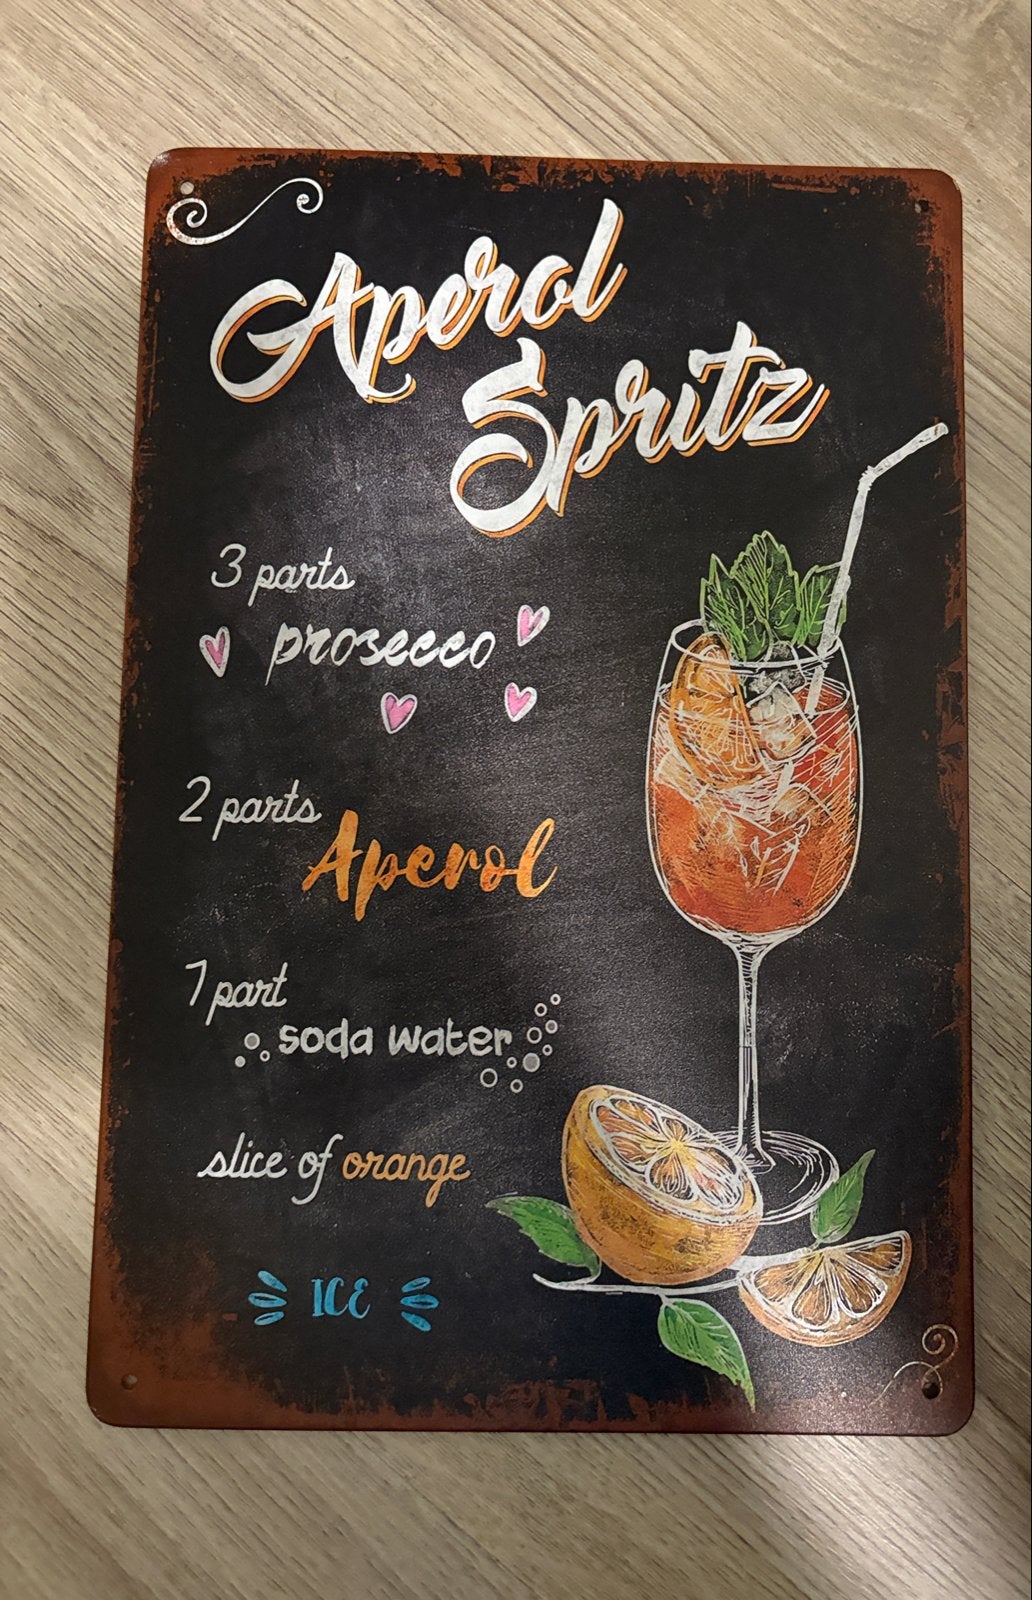 Aperol
Spritz
3 parts
prosecco
2 parts
Aperol
1 part
soda water
slice of orange
ICE